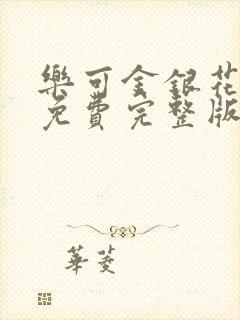 樂可金銀花
免費完整版
華菱